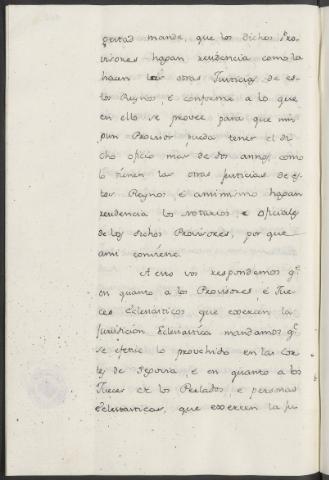 gestad mande, que los dichos Pro-
visores hagan residencia como la
hacen las otras Justicias de es-
tos Reynos, é conforme a lo que
en ello se provee para que nin-
gun Provisor pueda tener el di-
cho oficio mas de dos annos, como
lo tienen las otras justicias de es-
tos Reynos é ansimismo hagan
residencia los notarios, e oficiales
de los dichos Provisores, por que
ansi conviene.
A esto vos respondemos q.e
en quanto a los Provisores, é Jue-
ces Eclesiásticos que exercen la
jurisdicion Eclesiastica mandamos q.e
se efetúe lo provehido en las Cor-
tes de Segovia, e en quanto a los
Jueces de los Perlados, e personas
eclesiásticas, que exercen la ju-